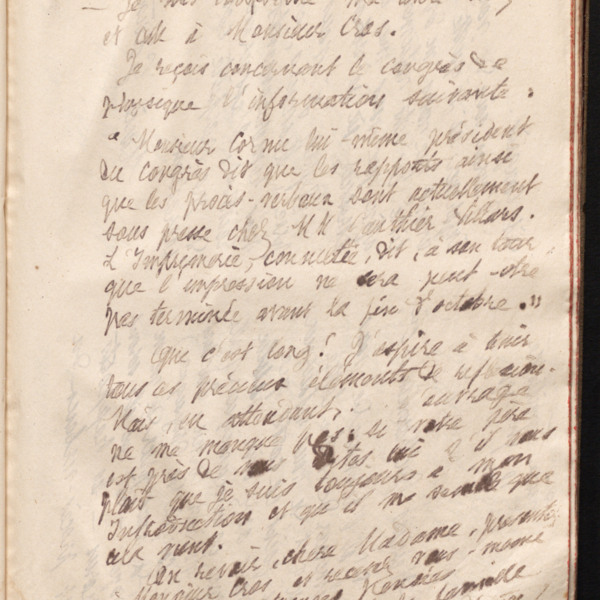 et ask à Monsieur Cros.
Je reçois concernant le congrès de
physique l'information suivante :
" Monsieur Cornu lui-même président
du congrès dit que les rapports ainsi
que les procès-verbaux sont actuellement
sous presse chez MM Gauthier Villars.
L'Imprimerie, consultée, dit, à son tour
que l'impression ne sera peut-être
pas terminée avant la fin d'octobre. "
Que c'est long ! J'aspire à tenir
tous ces précieux éléments de réflexion.
Mais, en attendant, ouvrage
ne me manque pas ; si votre père
est près de vous dites lui s'il vous
plaît que je suis toujours à mon
Introduction et qu'il me semble que
cela vient.
Au revoir, chère Madame, présentez
à Monsieur Cros et recevez vous-même